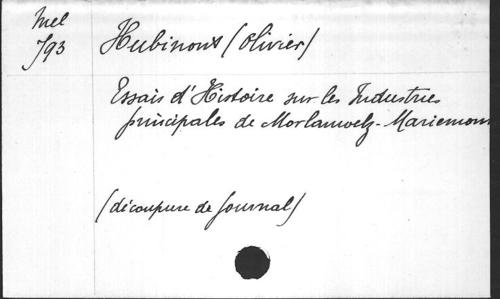 Mel
793
Hubinont (Olivier)
Essais d'Histoire sur les Industries
principales de Morlanwelz-Mariemont
(découpure de Journal)